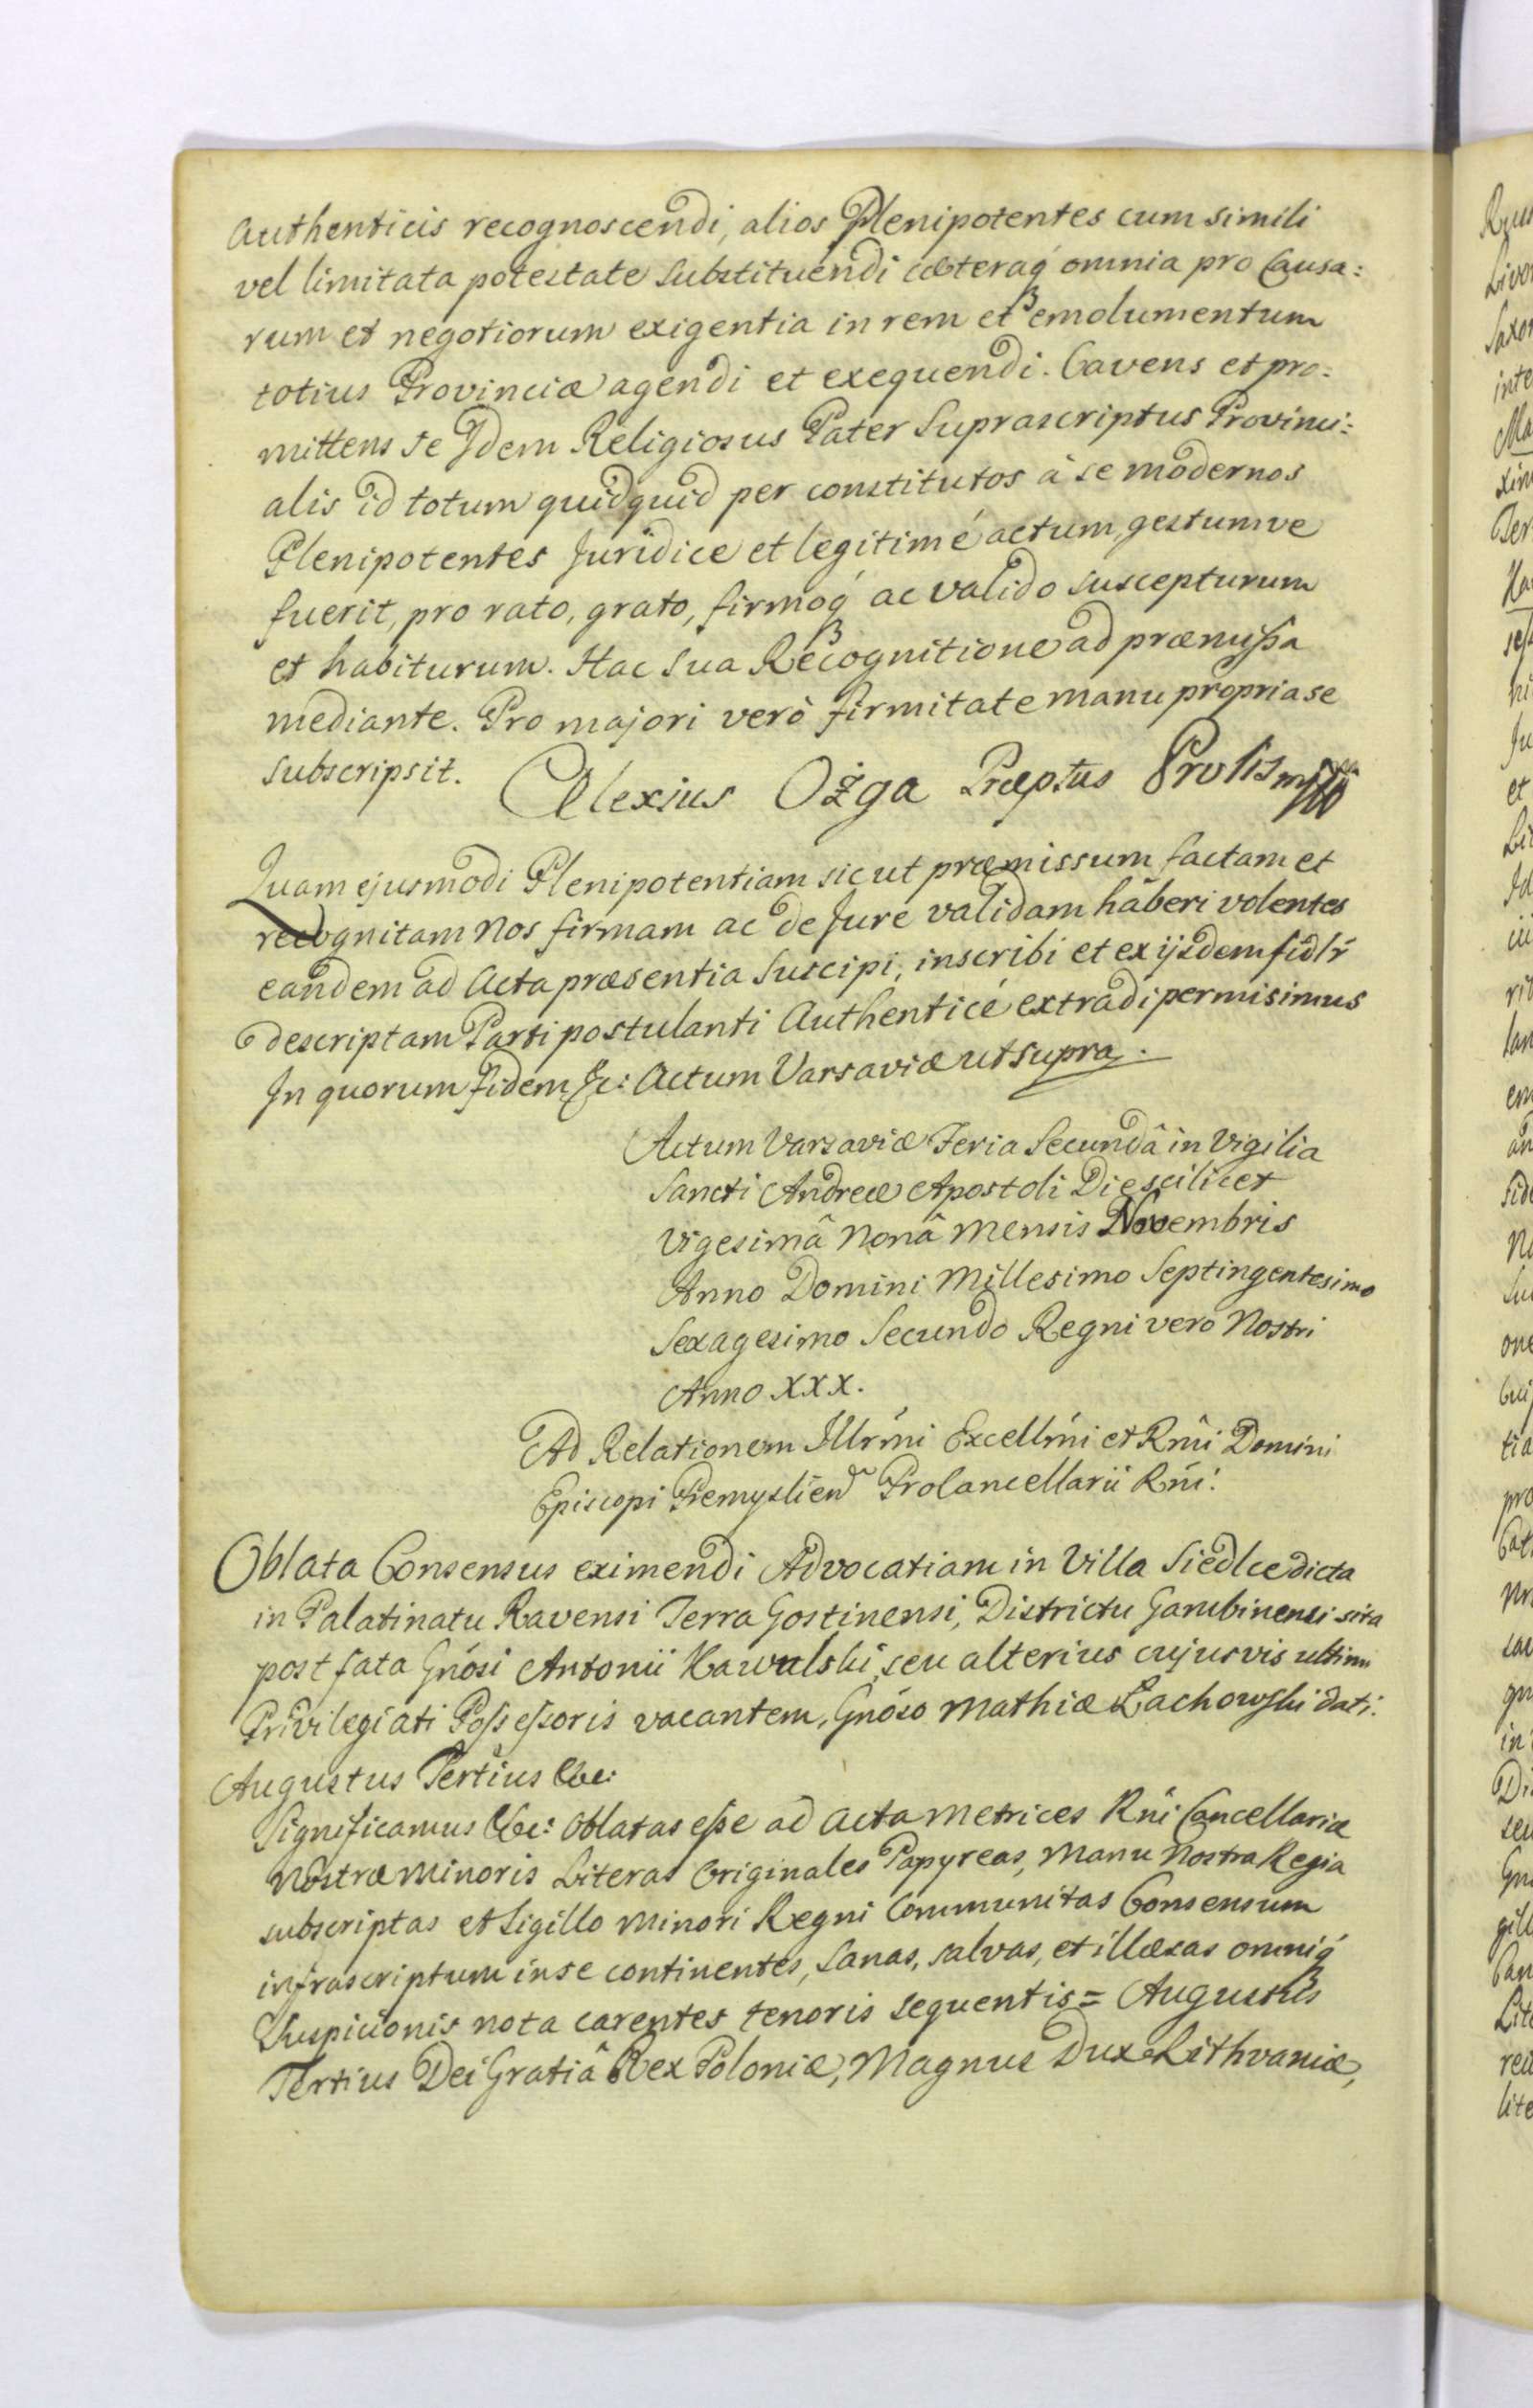 Authenticis recognoscendi, alios Plenipotentes cum simili
vel limitata potestate substituendi cæteraqꝫ omnia pro Causa:
rum et negotiorum exigentia in rem et emolumentum
totius Provinciæ agendi et exequendi. Cavens et pro:
mittens se Jdem Religiosus Pater Suprascriptus Provinci:
alis id totum quidquid per constitutos à se modernos
Plenipotentes Juridice et legitimé actum gestumve
fuerit, pro rato, grato, firmoqꝫ ac valido suscepturum
et habiturum. Hac Sua Recognitione ad præmißa
mediante. Pro majori verò firmitate manu propria se
subscripsit. Alexius Ożga Præptus Prolis
Quam ejusmodi Plenipotentiam sicut præmissum factam et
recognitam Nos firmam ac de Jure validam haberi volentes
eandem ad Acta præsentia Suscipi, inscribi et ex ijsdem fidlr
descriptam Parti postulanti Authenticé extradi permisimus
Jn quorum fidem &c: Actum Varsaviæ ut supra.
Actum Varsaviæ Feria Secundâ in Vigilia
Sancti Andreæ Apostoli Die scilicet
Vigesimâ Nonâ Mensis Novembris
Anno Domini Millesimo Septingentesimo
Sexagesimo Secundo Regni vero Nostri
Anno XXX.
Ad Relationem Jllrm̃i Excellm̃i et Rm̃i Domini
Episcopi Premyslien̄ Procancellarii Rñi.
Oblata Consensus eximendi Advocatiam in Villa Siedlce dicta
in Palatinatu Ravensi Terra Gostinensi, Districtu Gambinensi sita
post fata Gñosi Antonii Kawalski, seu alterius cujusvis ultimi
Privilegiati Possessoris vacantem, Gñoso Mathiæ Lachowski dati.
Augustus Tertius &c:
Significamus &c: Oblatas esse ad Acta Metrices Rñi Cancellariæ
Nostræ Minoris Literas Originales Papyreas, Manu Nostra Regia
subscriptas et Sigillo Minori Regni Communitas Consensum
infrascriptum in se continentes, Sanas, salvas, et illæsas omniqꝫ
Suspicionis nota carentes tenoris sequentis = Augustus
Tertius Dei Gratiâ Rex Poloniæ, Magnus Dux Lithvaniæ,